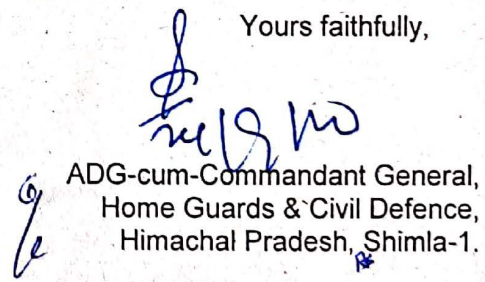 Yours faithfully,
ADG-cum-Commandant General,
Home Guards & Civil Defence,
Himachal Pradesh, Shimla-1.